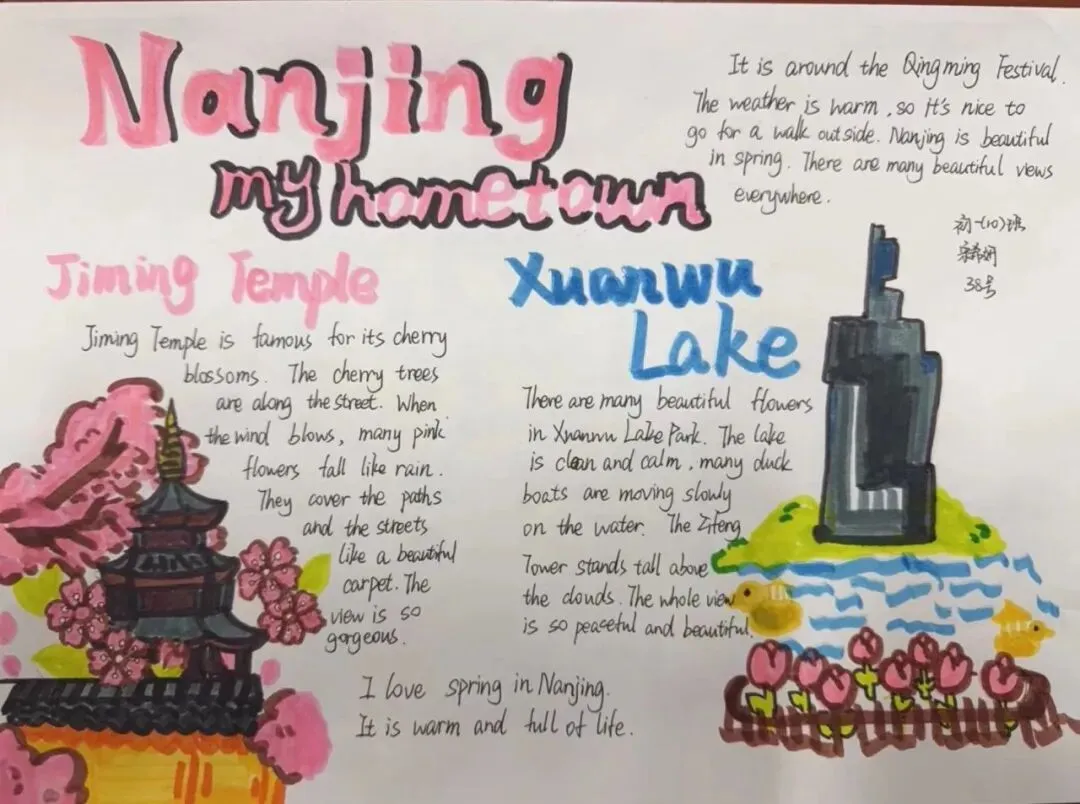 Nanjing
my hometown
It is around the Qingming Festival.
The weather is warm, so it's nice to
go for a walk outside. Nanjing is beautiful
in spring. There are many beautiful views
everywhere.
初一(10)班
38号
Jiming Temple
Jiming Temple is famous for its cherry
blossoms. The cherry trees
are along the street. When
the wind blows, many pink
flowers fall like rain.
They cover the paths
and the streets
like a beautiful
carpet. The
view is so
gorgeous.
Xuanwu
Lake
There are many beautiful flowers
in Xuanwu Lake Park. The lake
is clean and calm, many duck
boats are moving slowly
on the water. The Zifeng
Tower stands tall above
the clouds. The whole view
is so peaseful and beautiful.
I love spring in Nanjing.
It is warm and full of life.